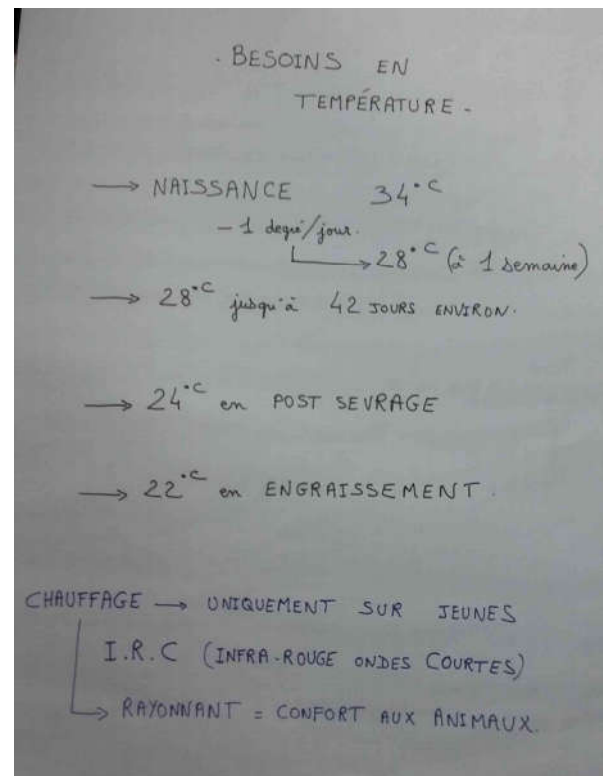 . BESOINS EN
TEMPÉRATURE -
→ NAISSANCE 34°C
- 1 degré/jour.
→ 28°C (à 1 semaine)
→ 28°C jusqu'à 42 JOURS ENVIRON.
→ 24°C en POST SEVRAGE
→ 22°C en ENGRAISSEMENT.
CHAUFFAGE → UNIQUEMENT SUR JEUNES
I.R.C (INFRA-ROUGE ONDES COURTES)
→ RAYONNANT = CONFORT AUX ANIMAUX.